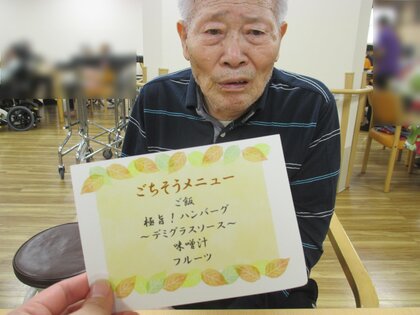 ごちそうメニュー
ご飯
極旨！ハンバーグ
～デミグラスソース～
味噌汁
フルーツ